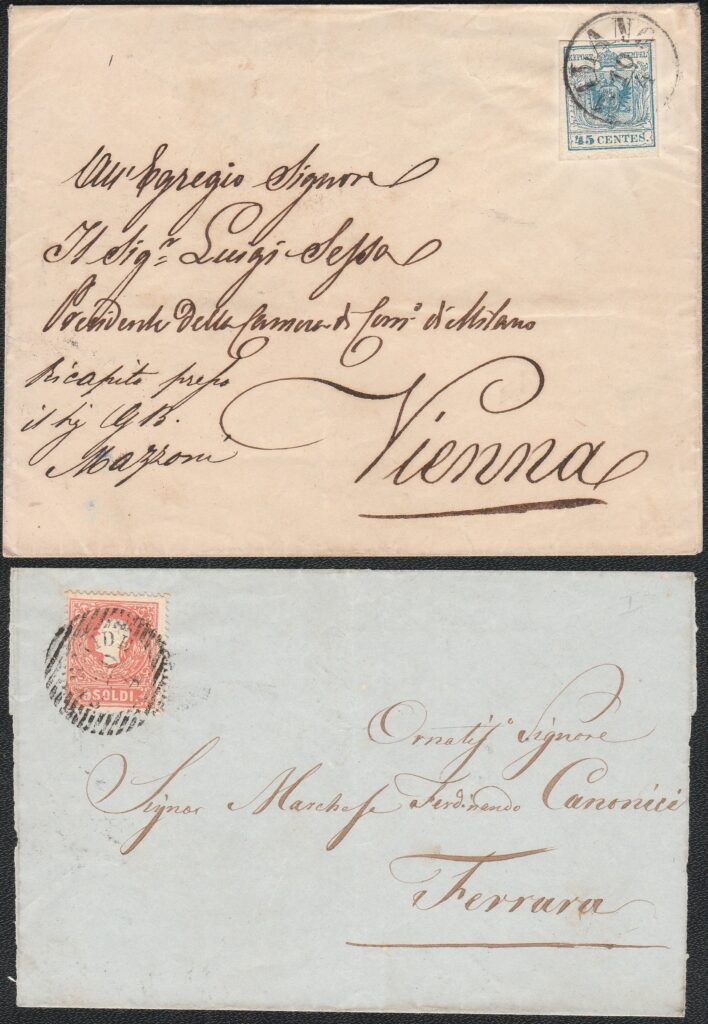 MILANO
19
KKPOST STEMPEL
45 CENTES.
All'Egregio Signore
Il Sigr. Luigi Sessa
Presidente della Camera di Como. di Milano
Ricapito presso
il Sig G.B.
Mazzoni
Vienna
5 SOLDI
Ornatiso. Signore
Signor Marchese Ferdinando Canonici
Ferrara